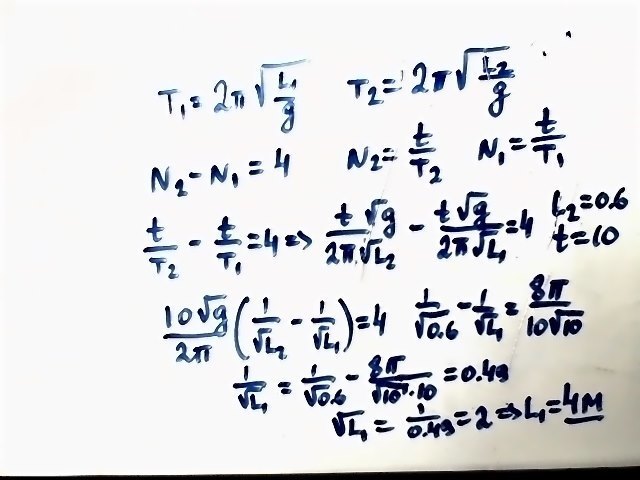 T₁ = 2π√(L₁/g) T₂ = 2π√(L₂/g)
N₂ - N₁ = 4 N₂ = t/T₂ N₁ = t/T₁
t/T₂ - t/T₁ = 4 => t√g/2π√L₂ - t√g/2π√L₁ = 4 L₂ = 0.6
t = 10
10√g/2π (1/√L₂ - 1/√L₁) = 4 1/√0.6 - 1/√L₁ = 8π/10√10
1/√L₁ = 1/√0.6 - 8π/√10·10 = 0.49
√L₁ = 1/0.49 = 2 => L₁ = 4M